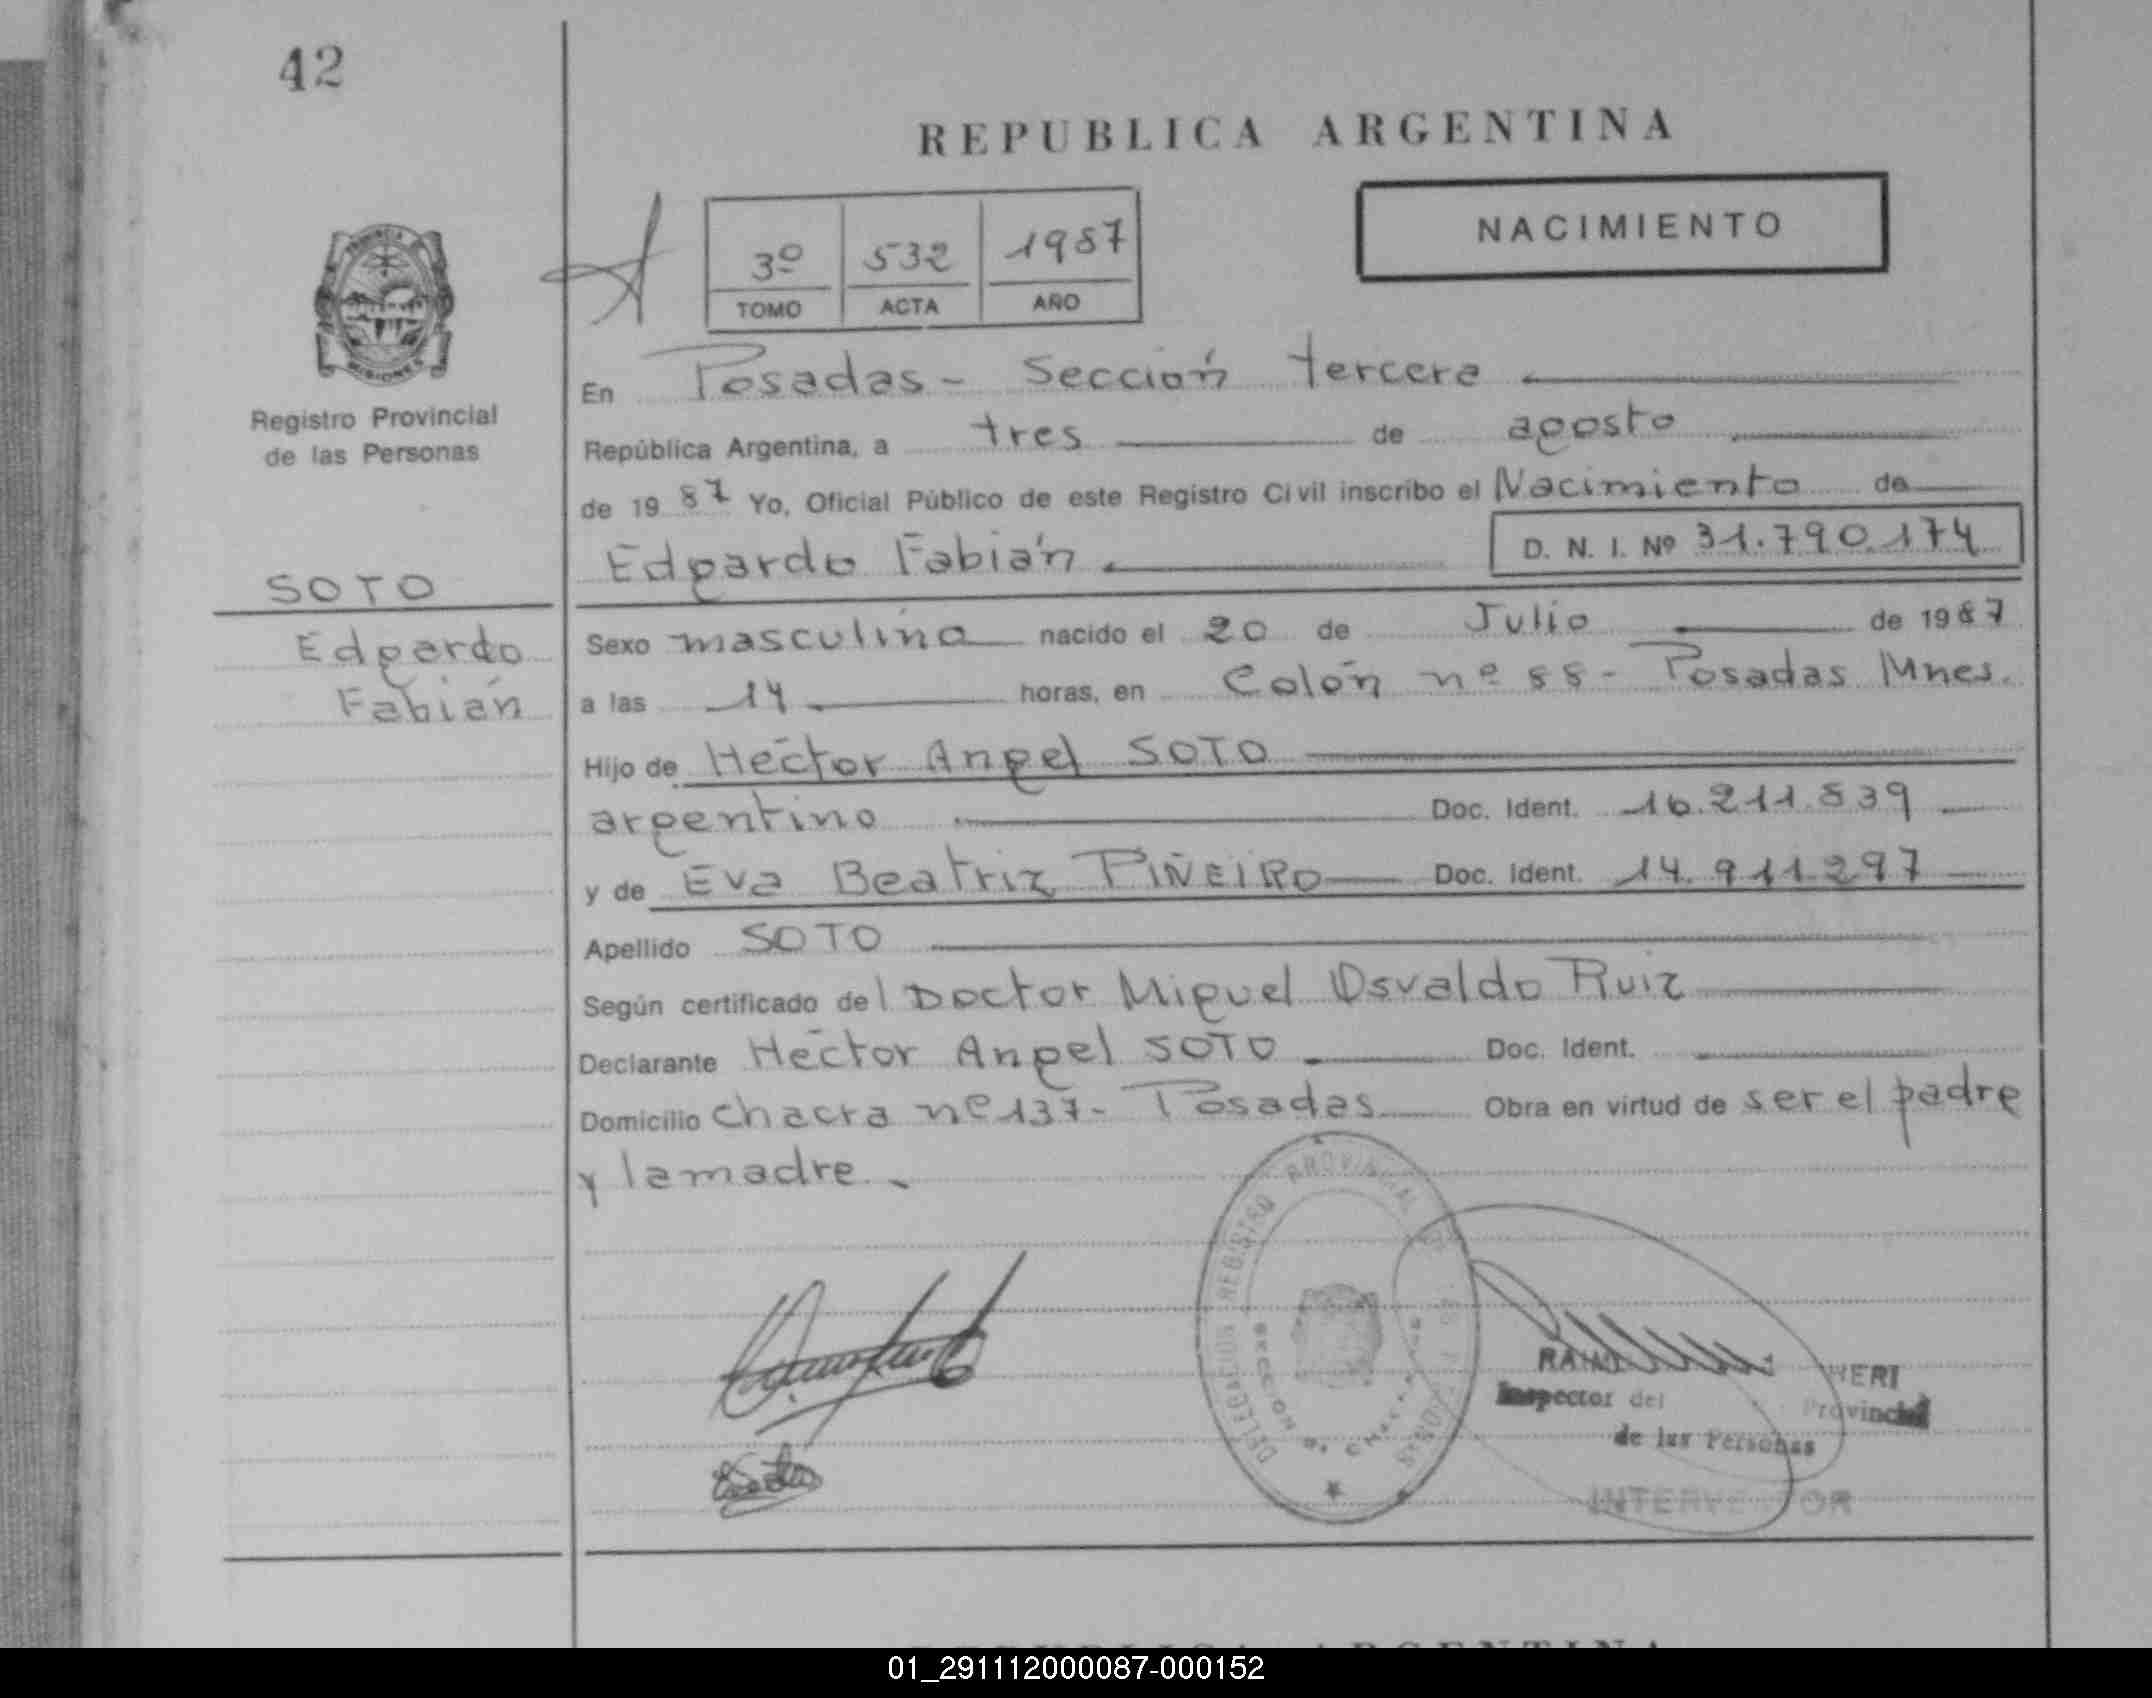 42
REPUBLICA ARGENTINA
NACIMIENTO
3º 532 1987
TOMO ACTA AÑO
PROVINCIA
MISIONES
Registro Provincial
de las Personas
En Posadas - Sección tercera
República Argentina, a tres de agosto
de 1987 Yo, Oficial Público de este Registro Civil inscribo el Nacimiento de
Edgardo Fabián D. N. I. Nº 31.790.174
SOTO
Edgardo
Fabián
Sexo masculino nacido el 20 de Julio de 1987
a las 14 horas, en Colón nº 88 - Posadas Mnes.
Hijo de Héctor Angel SOTO
argentino Doc. Ident. 16.211.839
y de Eva Beatriz PIÑEIRO Doc. Ident. 14.911.297
Apellido SOTO
Según certificado del Doctor Miguel Osvaldo Ruiz
Declarante Héctor Angel SOTO Doc. Ident.
Domicilio chacra nº 137 - Posadas Obra en virtud de ser el padre
y la madre.
DELEGACION REGISTRO PROVINCIAL
Inspector del Provincial
de las Personas
INTERVENTOR
REPUBLICA ARGENTINA
01_291112000087-000152